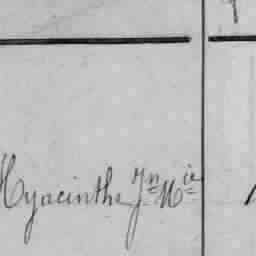 Hyacinthe Jn Mie